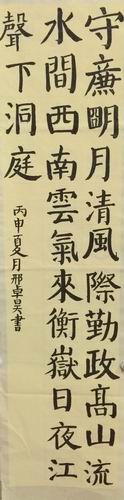 守廉明月清風際勤政高山流
水間西南雲氣來衡嶽日夜江
聲下洞庭
丙申百夂月邢卓昊書